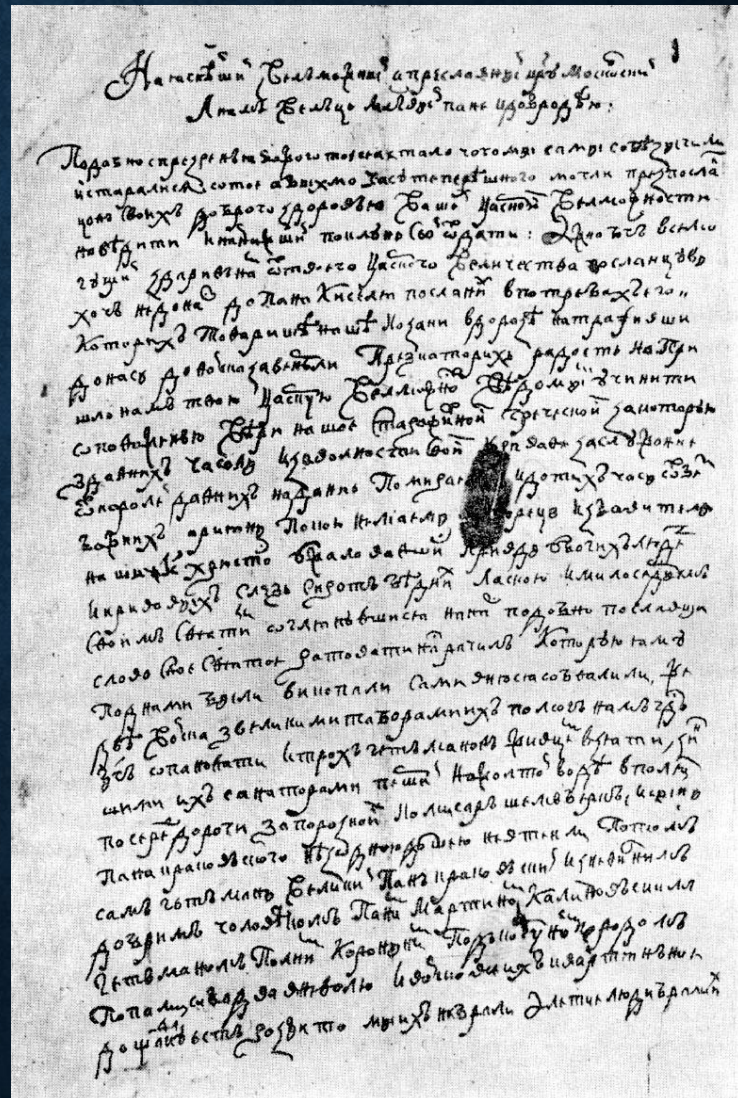 Наяснѣйший велможный и преславный цару московский
А намъ велце милостивый пане и добродѣю:
Подобно с презрѣня Божого тое ся стало чого мы сами собѣ зычили
и старалися о тое абыхмо часу теперешнего могли през послан
цовъ своихъ доброго здоровья вашей царской велможности
навѣдити и найнизший поклонъ свой отдати: ажно Бог всемо
гущий здаривъ намъ от твоего царского величества посланцувъ
хочъ не до насъ до пана Киселя посланных в потребах его
которыхъ товаришѣ наши козаки в дорозѣ натрафивши
до насъ до войска завернули През которихъ радостно при
шло намъ твою царскую велможность вѣдомымъ учинити
оповоженю вѣри нашое старожитной греческой за которую
з давнихъ часовъ и за волности свои криваве заслужоние
от королей давнихъ надание помираемъ и до тихъ часъ от без
божнихъ ариянъ покою не маемъ творецъ избавитель
нашъ Христосъ ужаловавшися кривдъ убогихъ людей
и кривавихъ слезъ сиротъ бѣднихъ ласкою и милосердемъ
своимъ святимъ оглянувшися на насъ подобно пославши
слово свое святое ратовати насъ рачилъ которую яму
под нами были викопали сами в ню ся обвалили же
двѣ войска з великими таборами ихъ помогъ намъ Господь
Богъ опановати и трохъ гетмановъ живцемъ взяти з ин
шими ихъ санаторами перший на Жолтой водѣ в полю
посередъ дороги Запорозкой комисаръ Шемберкъ и синъ
пана краковского нѣ з одною душею не втекли Потомъ
самъ гетманъ великий панъ краковский из невиннимъ
добримъ чоловѣкомъ паномъ Мартиномъ Калиновскимъ
гетманомъ полнимъ короннимъ под Корсуномъ городомъ
попали обадва в неволю и войско все ихъ квартяное
до щадку естъ розбито мы ихъ не брали але тие люди брали их